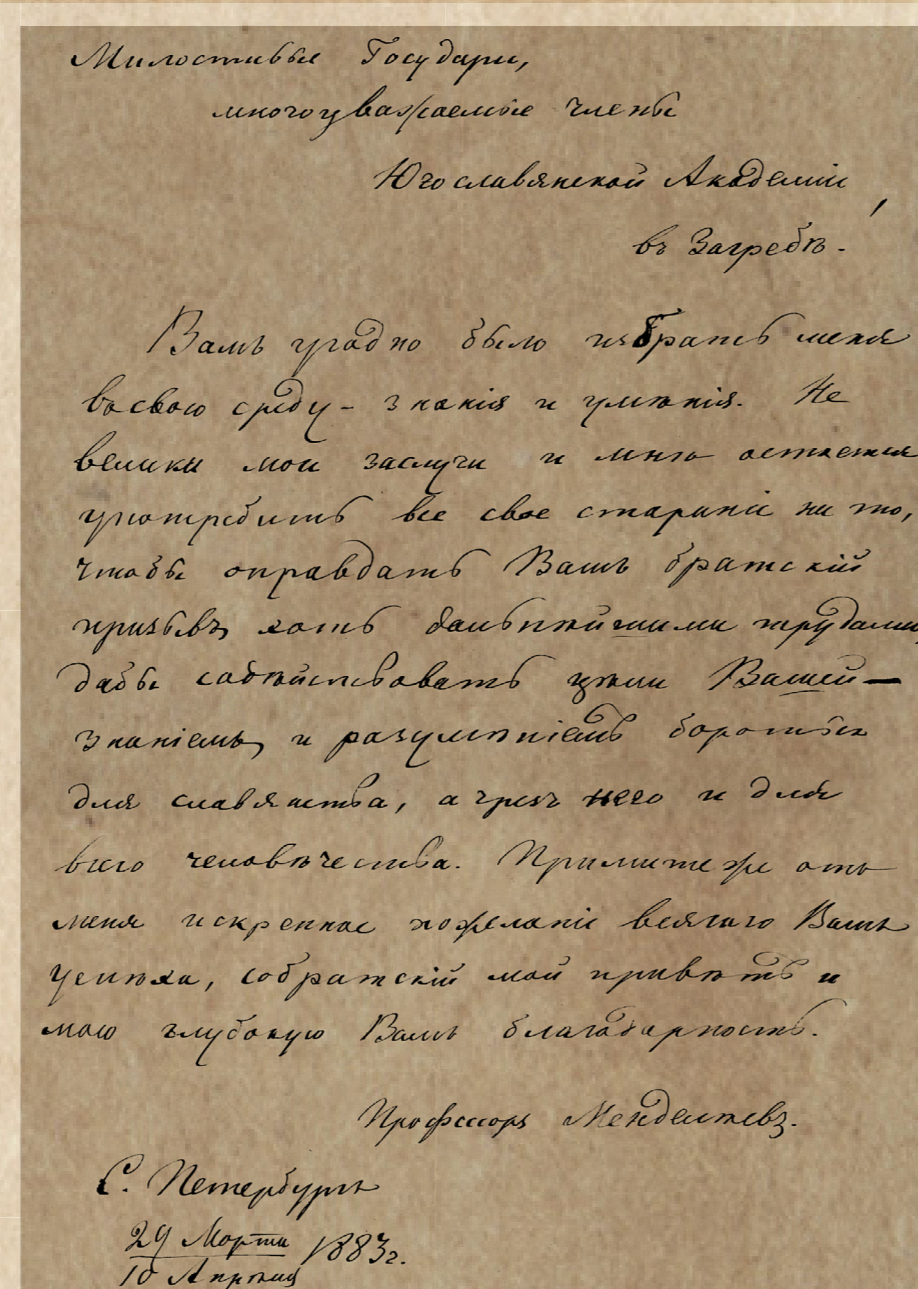 Милостивые Государи,
многоуважаемые члены
Югославянской Академіи,
въ Загребѣ.
Вамъ угодно было избрать меня
въ свою среду - знанія и умѣнія. Не
велики мои заслуги и мнѣ остается
употребить все свое стараніе на то,
чтобы оправдать Вашъ братскій
призывъ хоть дальнѣйшими трудами,
дабы содѣйствовать цѣли Вашей —
знаніемъ и разумѣніемъ бороться
для славянства, а чрезъ него и для
всего человѣчества. Примите же отъ
меня искреннее пожеланіе всякаго Вамъ
успѣха, собратскій мой привѣтъ и
мою глубокую Вамъ благодарность.
Профессоръ Менделѣевъ.
С. Петербургъ
29 Марта
10 Апрѣля 1883 г.